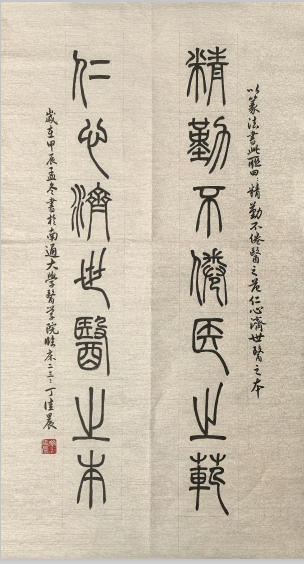 以篆法書此聯曰精勤不倦醫之范仁心濟世醫之本
精勤不倦医之範
仁心濟世醫之本
歲在甲辰孟冬書於南通大學醫學院臨床二三丁佳晨